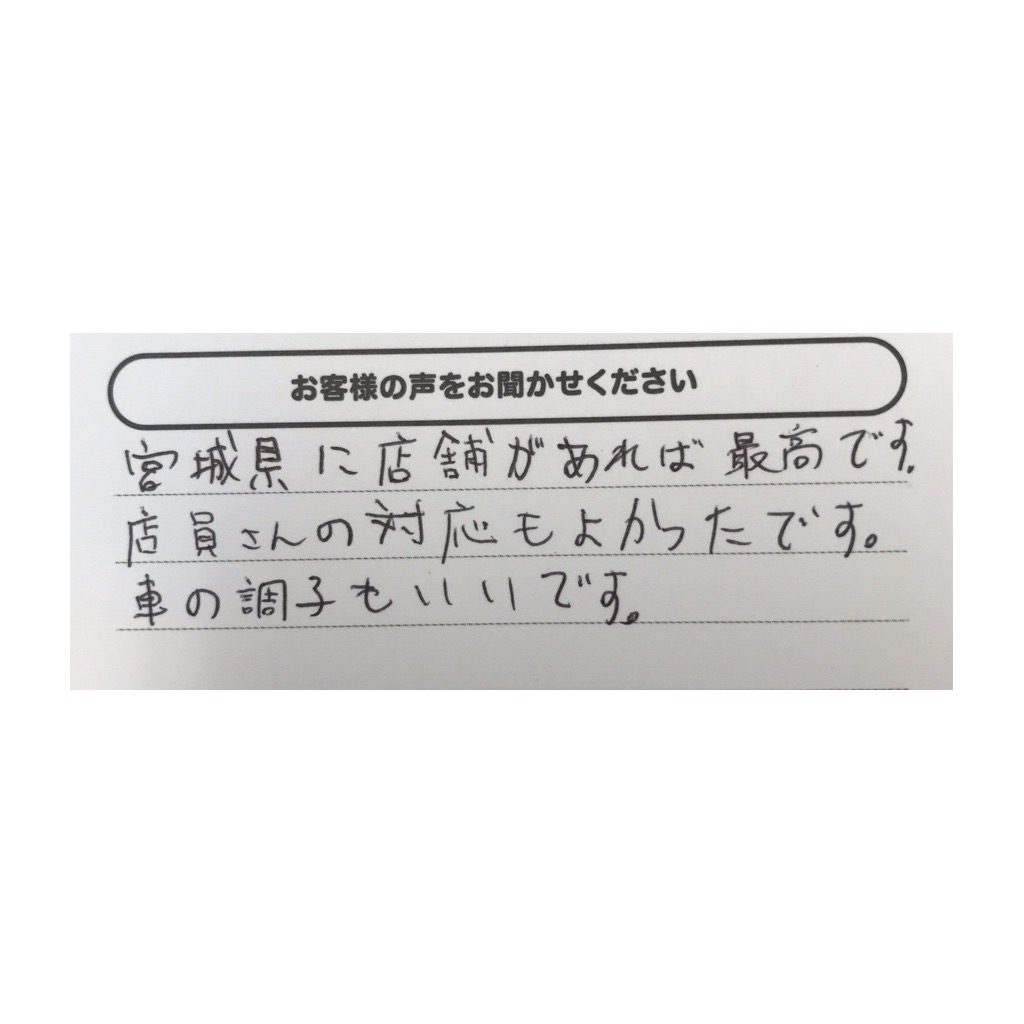 お客様の声をお聞かせください
宮城県に店舗があれば最高です。
店員さんの対応もよかったです。
車の調子もいいです。